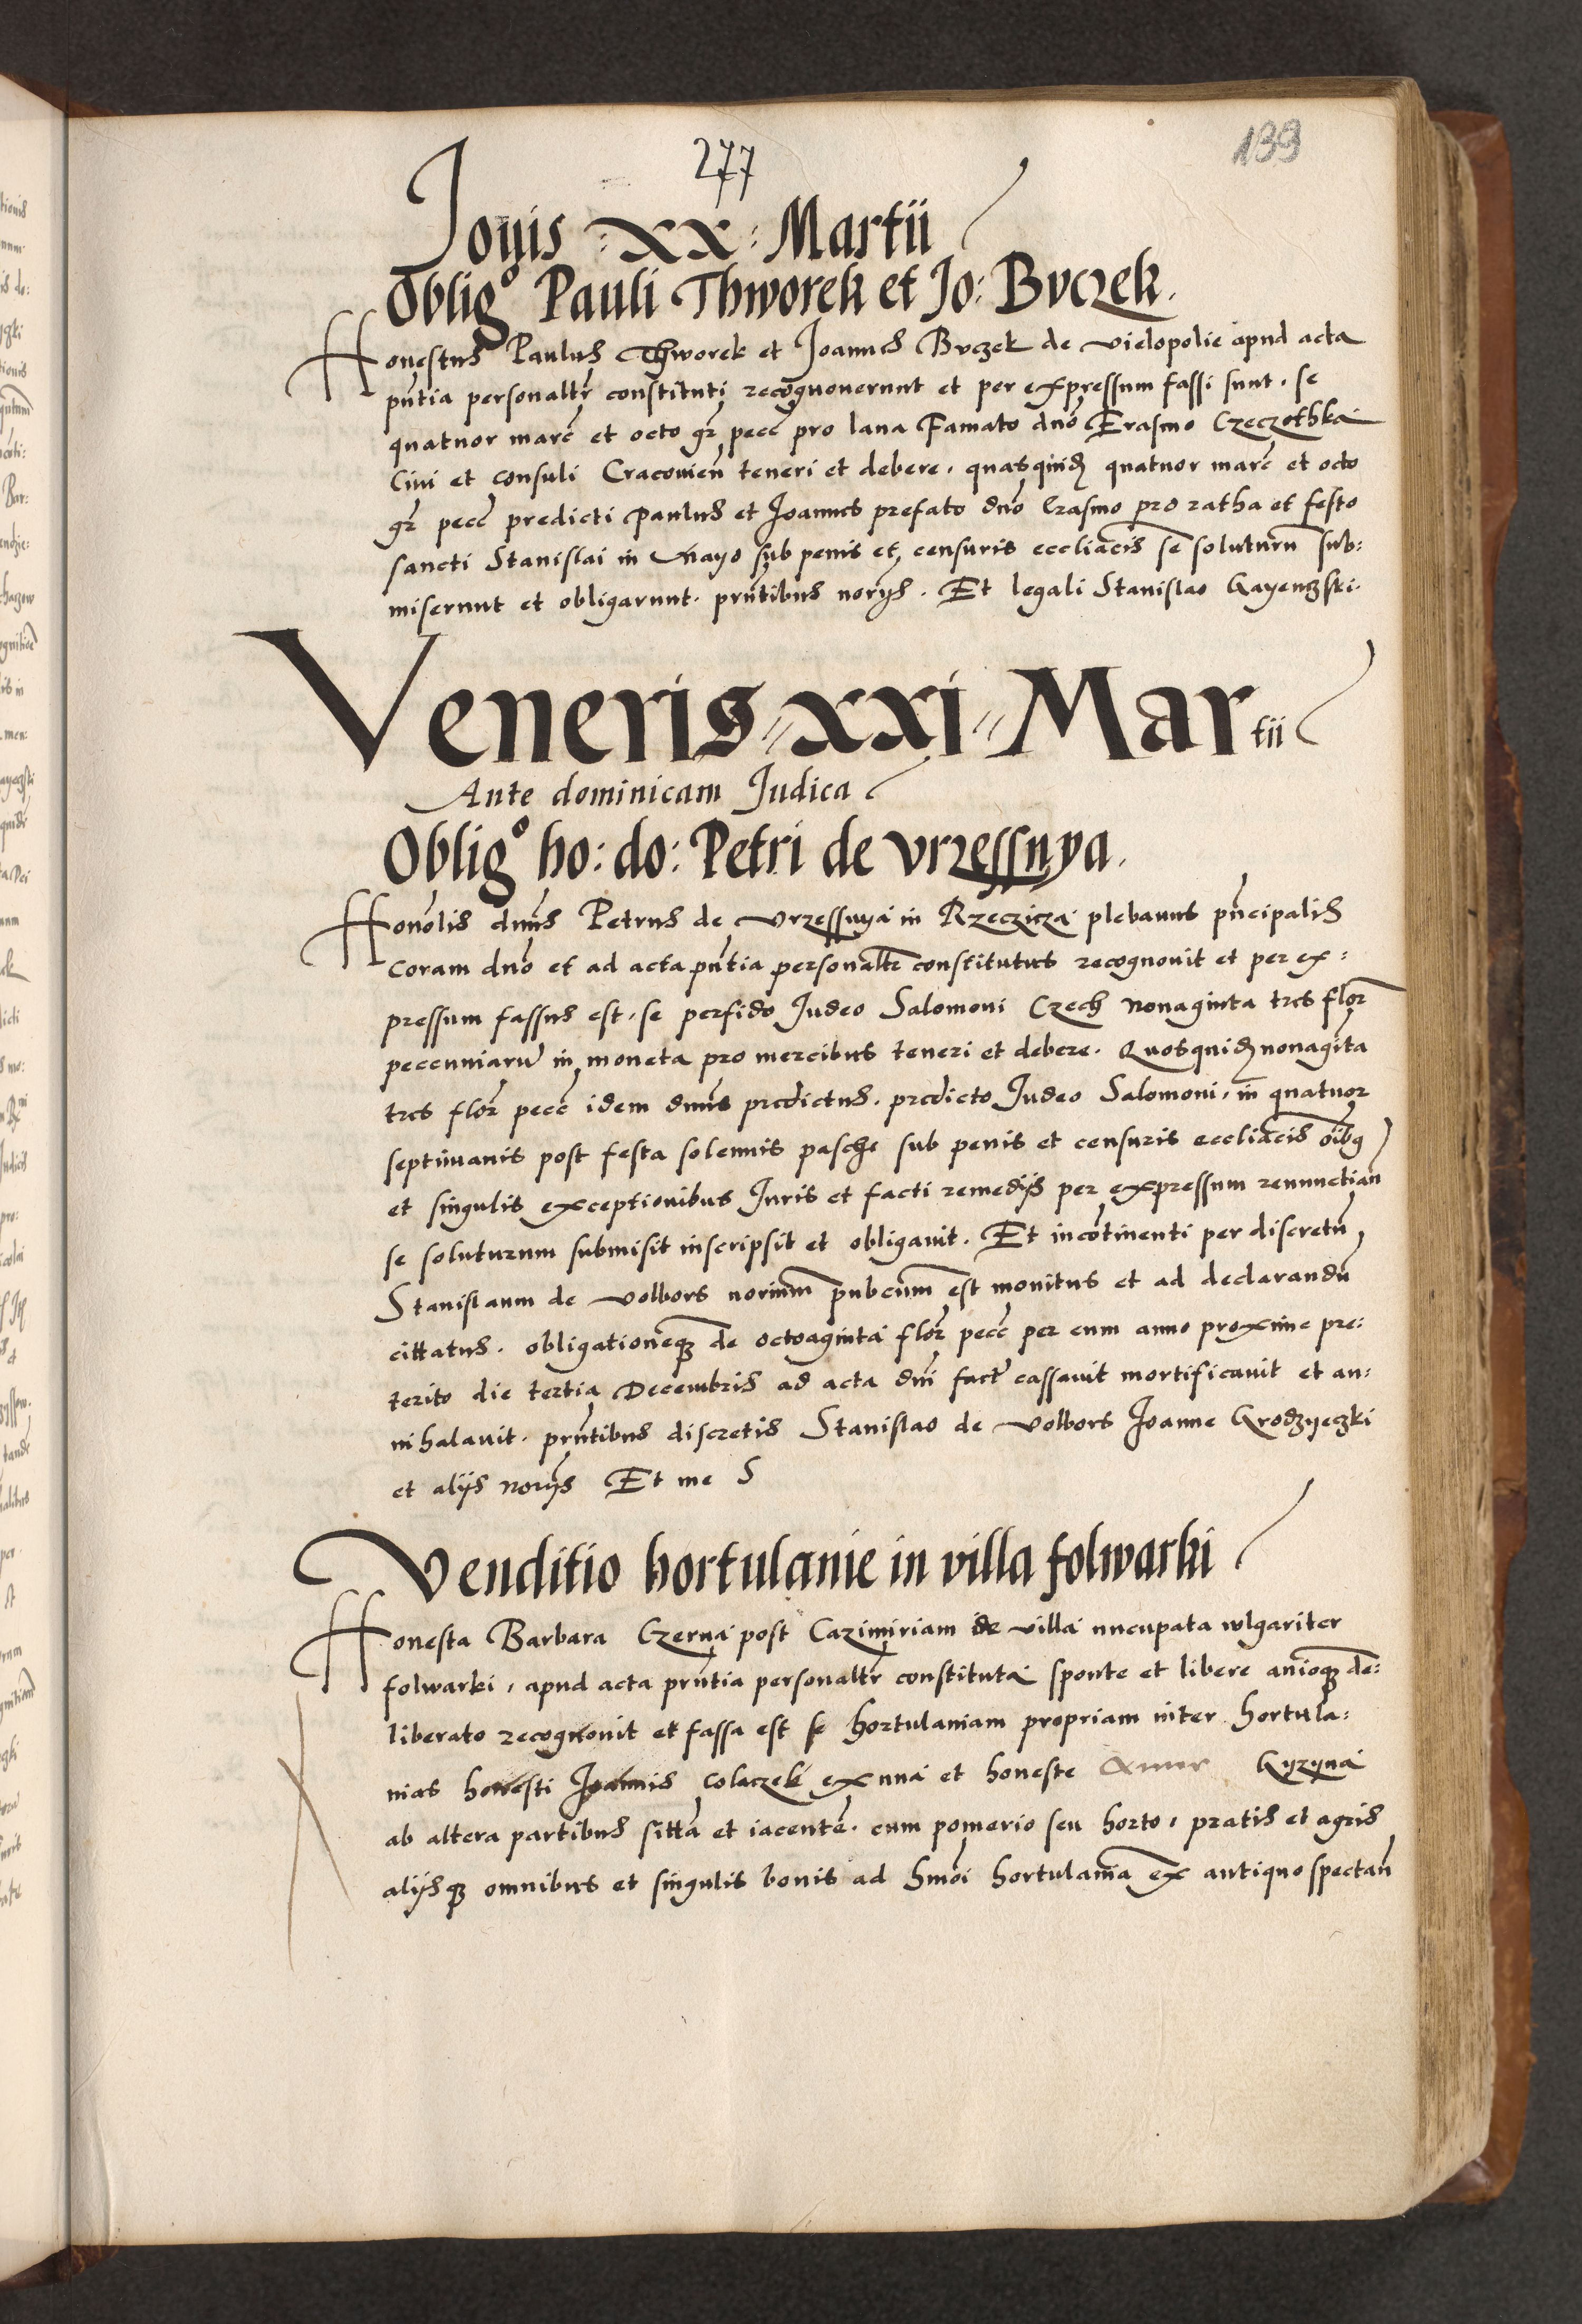 277
139
Jovis : XX : Martii
Oblig° Pauli Thworek et Jo: Bvczek.
Honestus Paulus Thworek et Joannes Bvczek de vielopolie apud acta
pñtia personaltr constituti recognoverunt et per expressum fassi sunt, se
quatuor marc et octo gr pecc pro lana Famato dno Erasmo Czeczothka
Civi et consuli Cracovien teneri et debere, quasquid quatuor marc et octo
gr pecc predicti Paulus et Joannes prefato dno Erasmo pro ratha et festo
sancti Stanislai in Mayo sub penis et censuris eccliacis se soluturu sub:
miserunt et obligarunt. pñtibus norijs. Et legali Stanislao Gayenczski.
Veneris // xxi // Martii
Ante dominicam Judica
Oblig° ho: do: Petri de vrzessnya.
Honolis dnus Petrus de vrzessnya in Rzeczicza plebanus pncipalis
coram dno et ad acta pñtia personaltr constitutus recognovit et per ex:
pressum fassus est, se perfido Judeo Salomoni Czech nonaginta tres flor
peccuniaru in moneta pro mercibus teneri et debere. Quosquid nonagita
tres flor pecc idem dnus predictus, predicto Judeo Salomoni, in quatuor
septimanis post festa solennis pasche sub penis et censuris eccliacis oibq
et singulis exceptionibus Juris et facti remedijs per expressum renunctian
se soluturum submisit inscripsit et obligavit. Et incotinenti per discretu
Stanislaum de volbors norium pubcum est monitus et ad declarandu
cittatus. obligationeq de octoaginta flor pecc per eum anno proxime pre:
terito die tertia Decembris ad acta dni fact cassavit mortificavit et an:
nihalavit. pñtibus discretis Stanislao de volbors Joanne Grodzyeczki
et alijs norijs Et me S
Venditio hortulanie in villa folwarki
Honesta Barbara Czerna post Cazimiriam de villa nucupata wlgariter
folwarki, apud acta prñtia personaltr constituta sponte et libere anioq de:
liberato recognovit et fassa est se hortulaniam propriam inter hortula:
nias honesti Joannis Colaczek ex una et honeste Anne Gyzyna
ab altera partibus sitta et iacente. cum pomerio seu horto, pratis et agris
alijsq omnibus et singulis bonis ad hmoi hortulania ex antiquo spectan